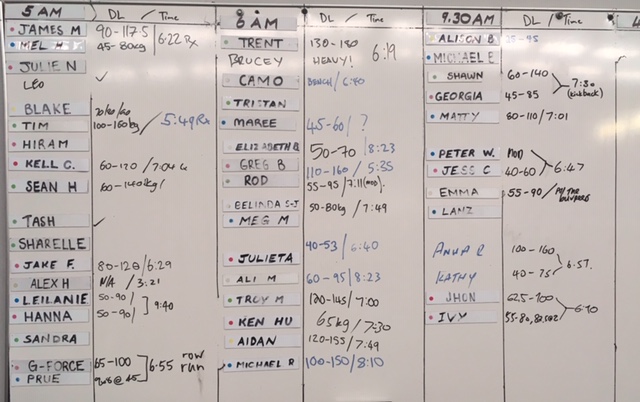 5 AM DL / Time
JAMES M 90-117.5
MEL H 45-80kg / 6:22 Rx
JULIE N
Leo ✓
BLAKE
TIM 100-160kg / 5:49 Rx
HIRAM
KELL C. 60-120 / 7:04
SEAN H 60-140kg/
TASH ✓
SHARELLE
JAKE F. 80-120 / 6:29
ALEX H N/A / 3:21
LEILANIE 50-90/
HANNA 50-90/ ] 9:40
SANDRA
G-FORCE 65-100
PRUE ] 6:55 row run
6 AM DL / Time
TRENT 130-180 6:19
BRUCEY HEAVY!
CAMO BENCH / 6:40
TRISTAN
MAREE 45-60/ ?
ELIZABETH B 50-70 / 8:23
GREG B 110-160 / 5:35
ROD 55-95 / 7:11
BELINDA S-J 50-80kg / 7:49
MEG M
JULIETA 40-53 / 6:40
ALI M 60-95 / 8:23
TROY M 120-145 / 7:00
KEN HU 65kg / 7:30
AIDAN 120-155 / 7:49
MICHAEL R 100-150 / 8:10
9.30AM DL / Time
ALISON B -95
MICHAEL E
SHAWN 60-140
GEORGIA 45-85 7:30 (kickback)
MATTY 60-110 / 7:01
PETER W.
JESS C 40-60 / 6:47
EMMA 55-90 / 
LANZ
ANHA R 100-160
KATHY 40-75 6:57.
JHON 62.5-100
IVY 6:10